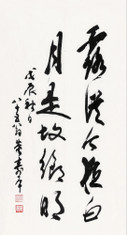 露從今夜白
月是故鄉明
戊辰秋日
八十五翁董壽平